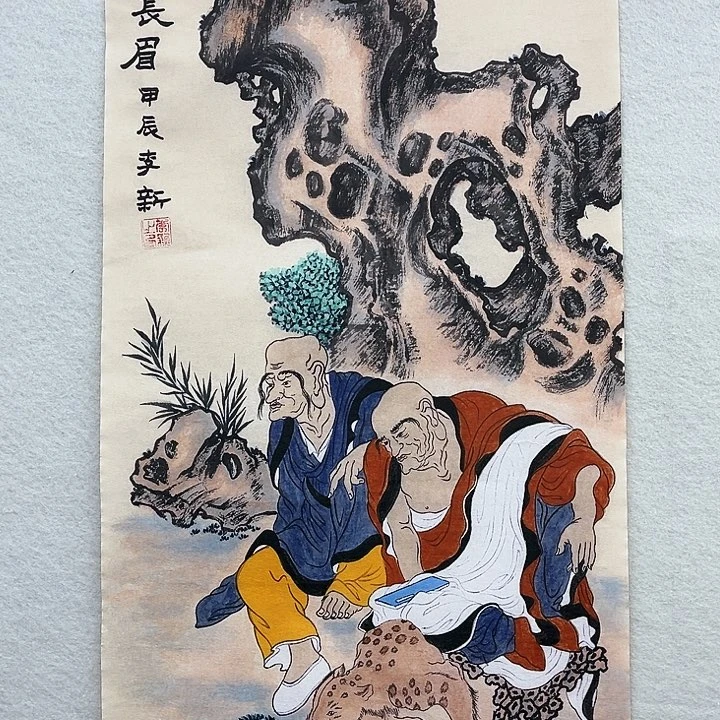 長眉甲辰李新